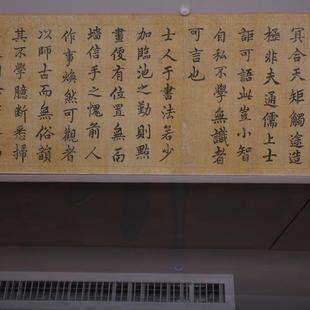 冥合天矩觸途造
極非夫通儒上士
詎可語此豈小智
自私不學無識者
可言也
士人于書法若少
加臨池之勤則點
畫便有位置無面
墻信手之愧前人
作事煥然可觀者
以師古而無俗韻
其不學臆斷悉掃